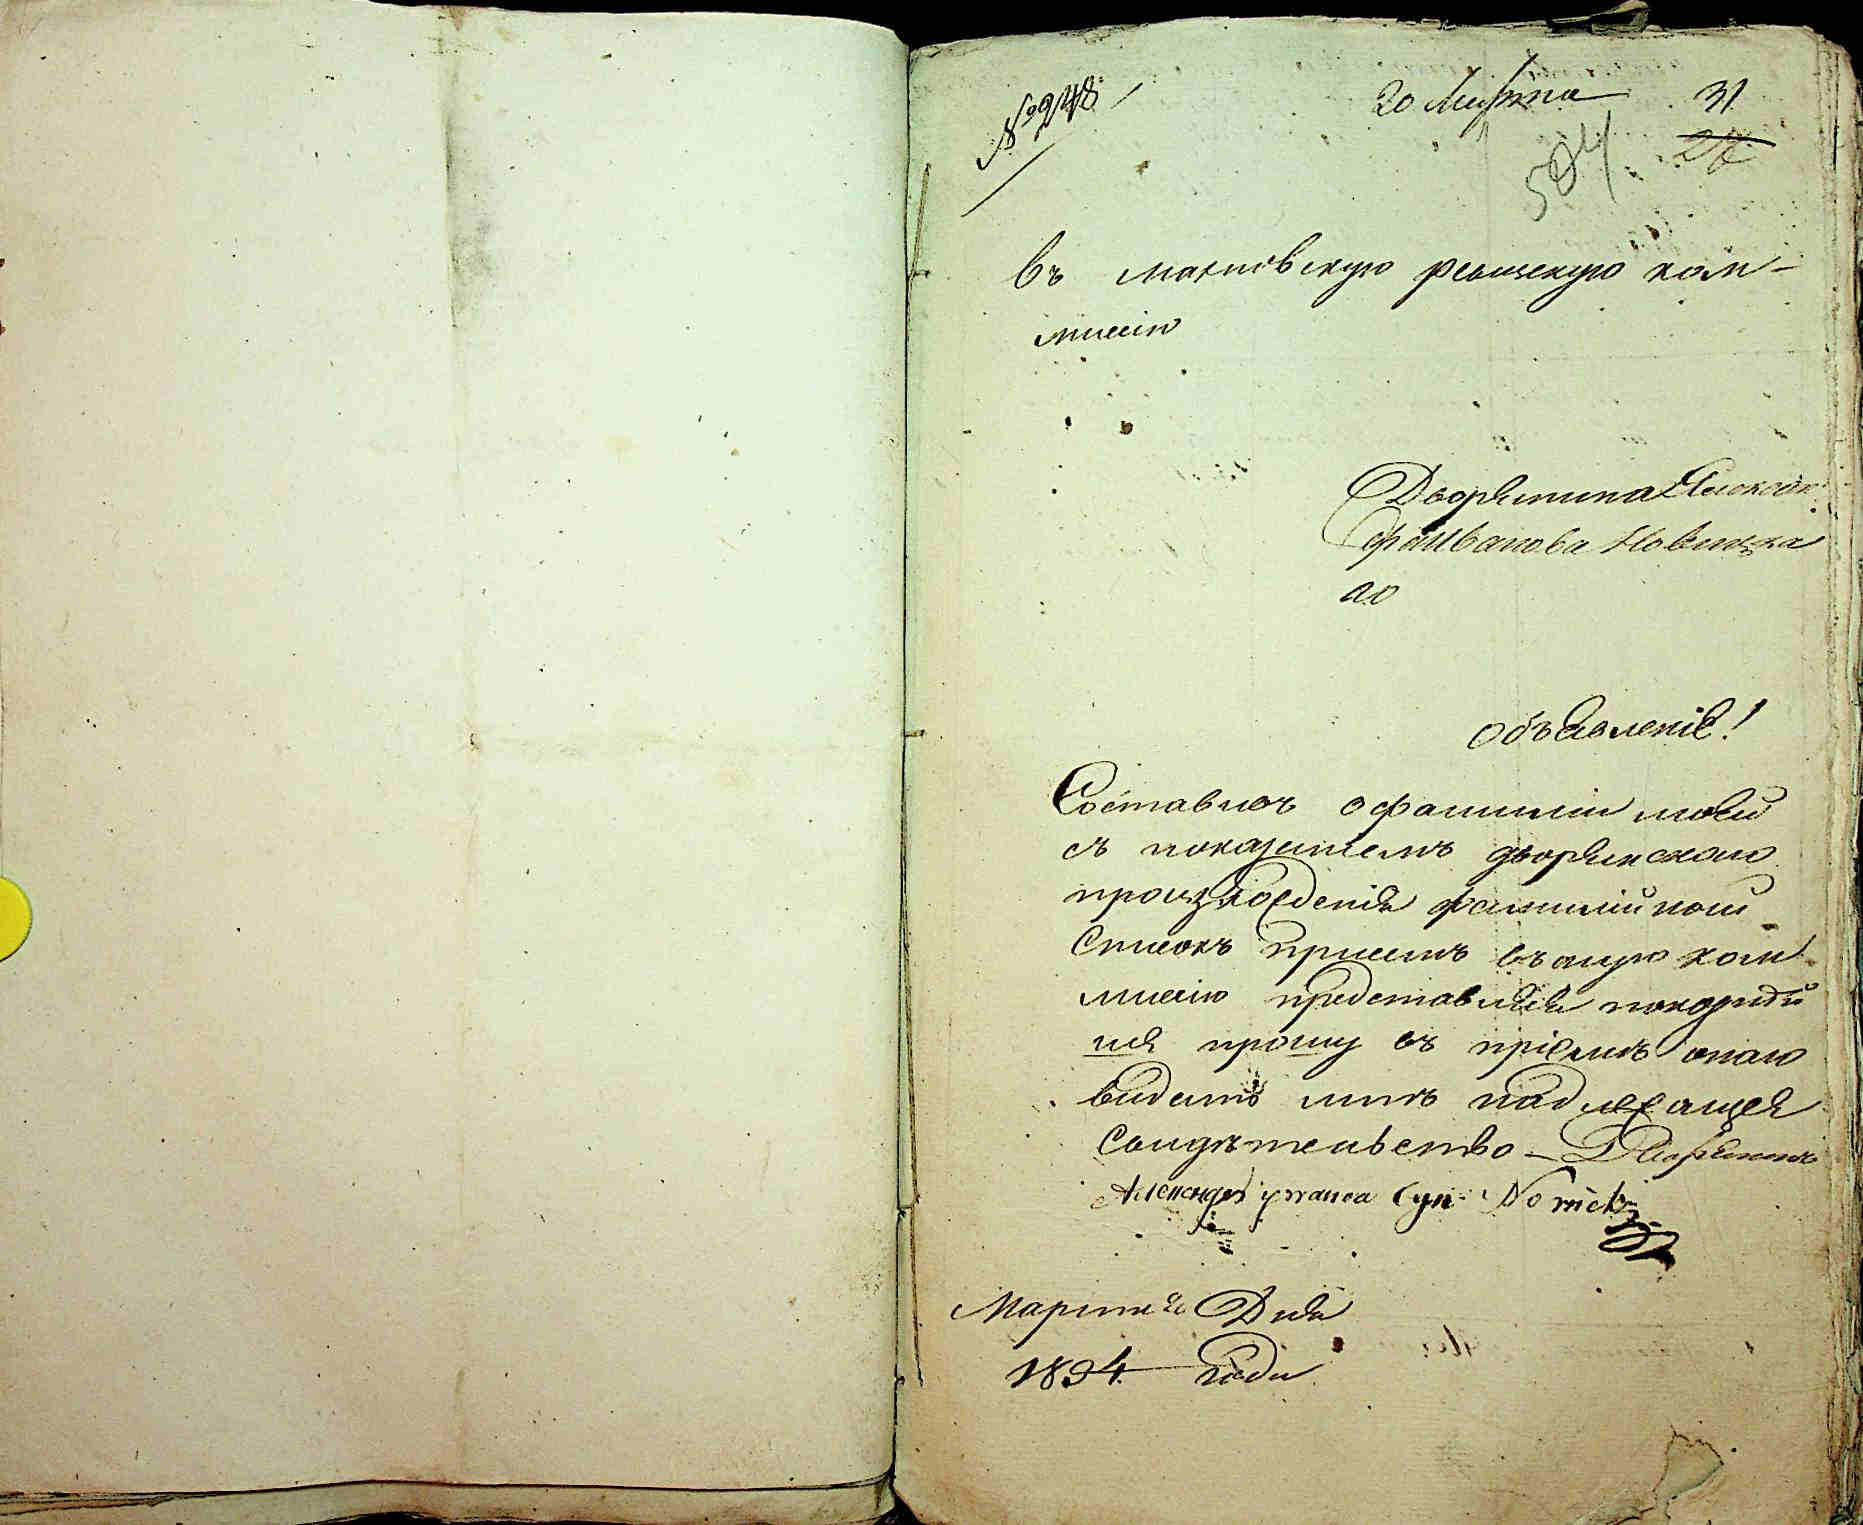 № 948
20 Марта 31
26
504
въ махновскую ревизскую ком-
мисію
Дворянина Александ
ра Иванова Новицка
го
Объявленіе!
Составивъ о фамиліи моей
съ показаніемъ дворянскаго
произхожденія фамилійной
Списокъ присемъ въ оную ком
мисію представляя покорнѣй
ше прошу въ пріемѣ онаго
видать мнѣ надлежащея
Свидѣтельство – Дворянинъ
Александръ Ивановъ Сунъ Nowicki
Марта 20 Дня
1834 года